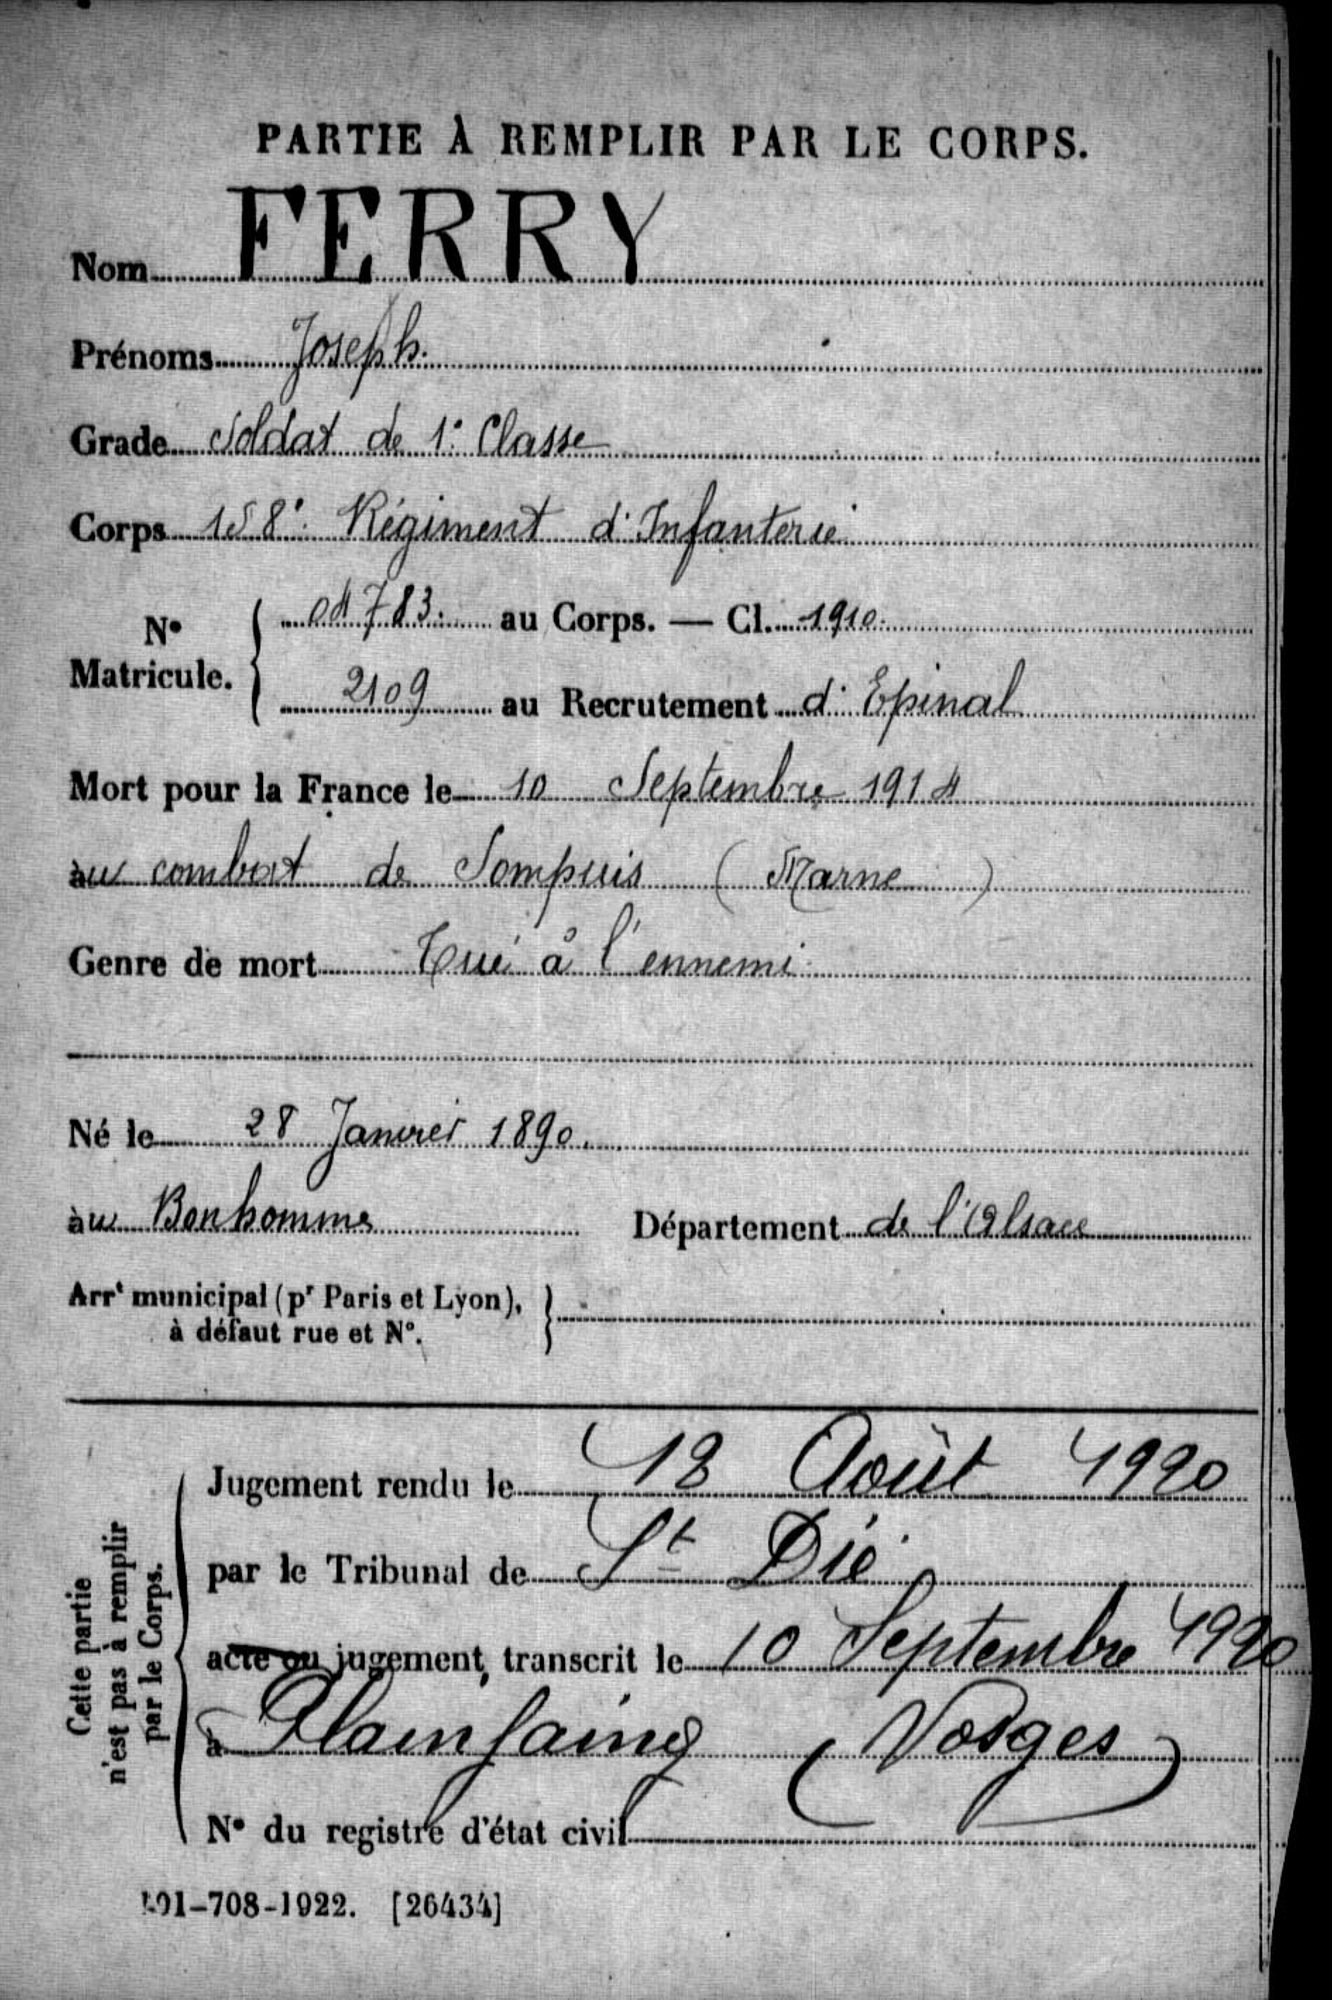 PARTIE À REMPLIR PAR LE CORPS.
Nom FERRY
Prénoms Joseph.
Grade Soldat de 1e Classe
Corps 158e Régiment d'Infanterie
N° Matricule. { 04783. au Corps. — Cl. 1910.
2109 au Recrutement d'Epinal
Mort pour la France le 10 Septembre 1914
au combat de Sompuis (Marne)
Genre de mort Tué à l'ennemi
Né le 28 Janvier 1890.
au Bonhomme Département de l'Alsace
Arrt municipal (pr Paris et Lyon),
à défaut rue et N°.
Cette partie
n'est pas à remplir
par le Corps.
Jugement rendu le 18 Août 1920
par le Tribunal de St Dié
acte ou jugement, transcrit le 10 Septembre 1920
à Plainfaing (Vosges)
N° du registre d'état civil
101-708-1922. [26434]